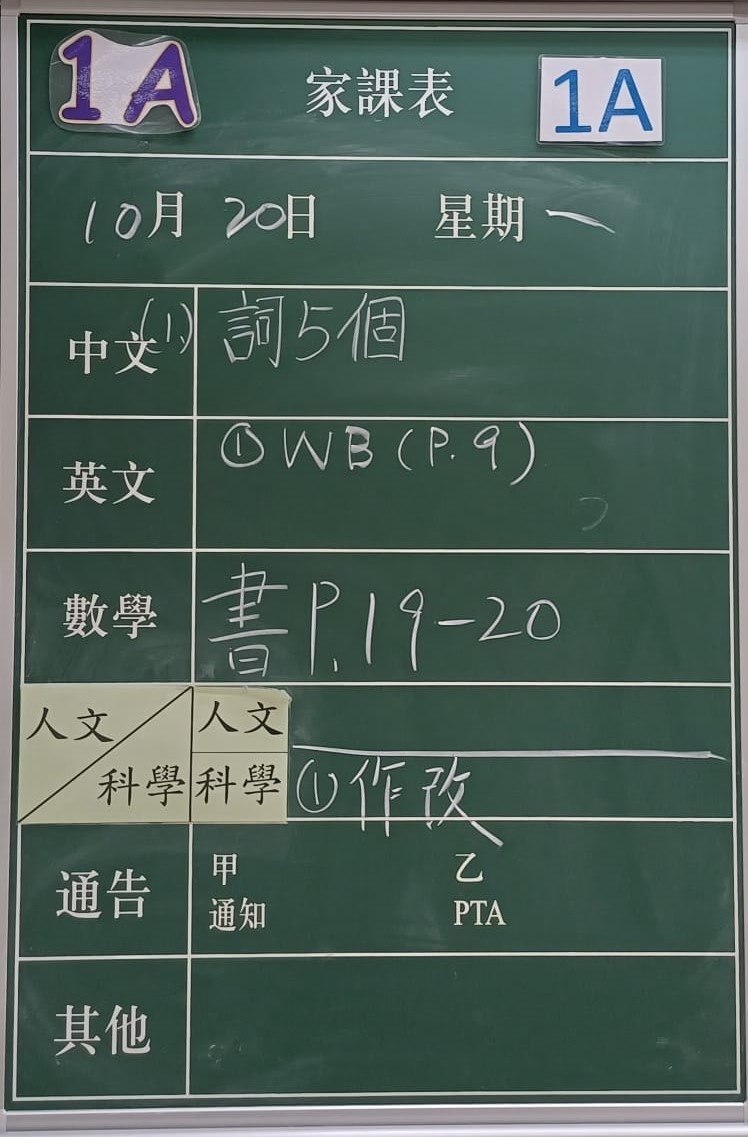 1A 家課表 1A
10月 20日 星期一
中文 (1) 詞5個
英文 ① WB (P.9)
數學 書P.19-20
人文/科學 人文
科學 ①作改
通告 甲 乙
通知 PTA
其他